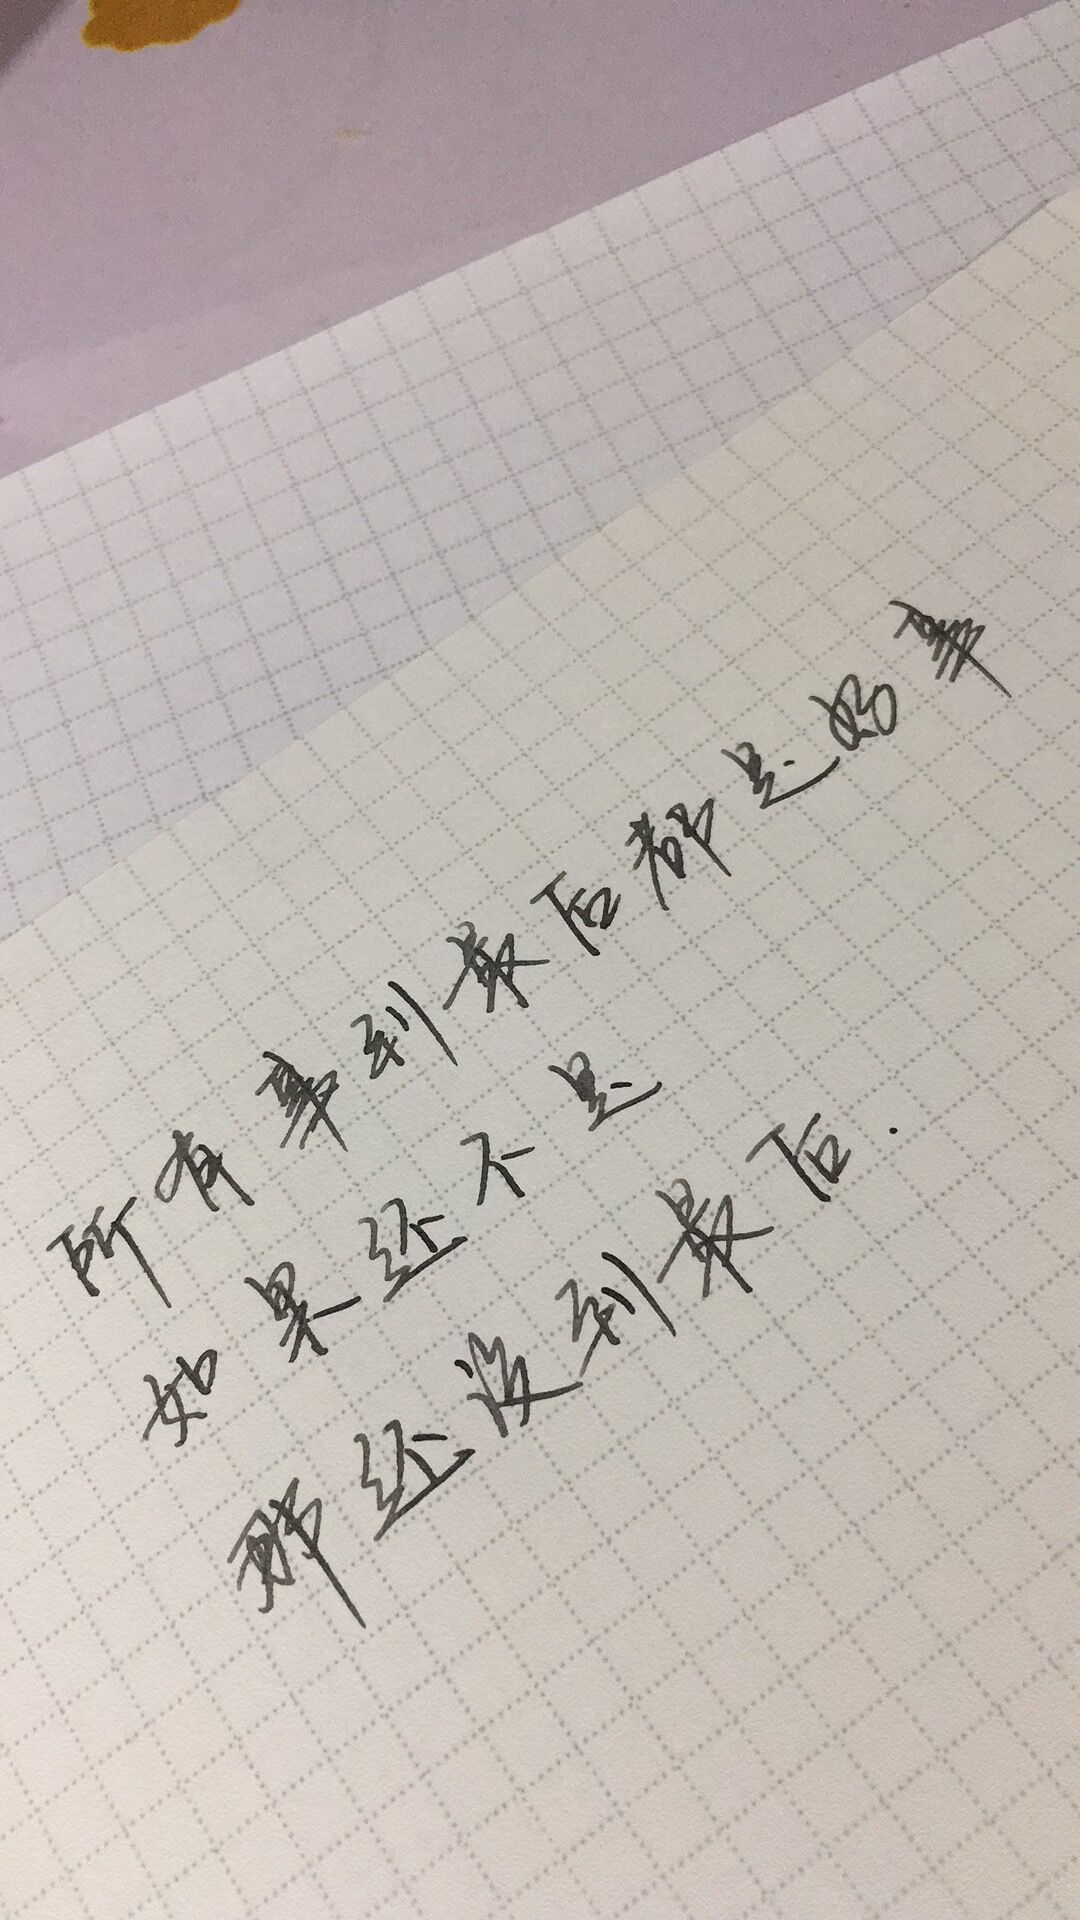 所有事到最后都是好事
如果经不是
那经没到最后.